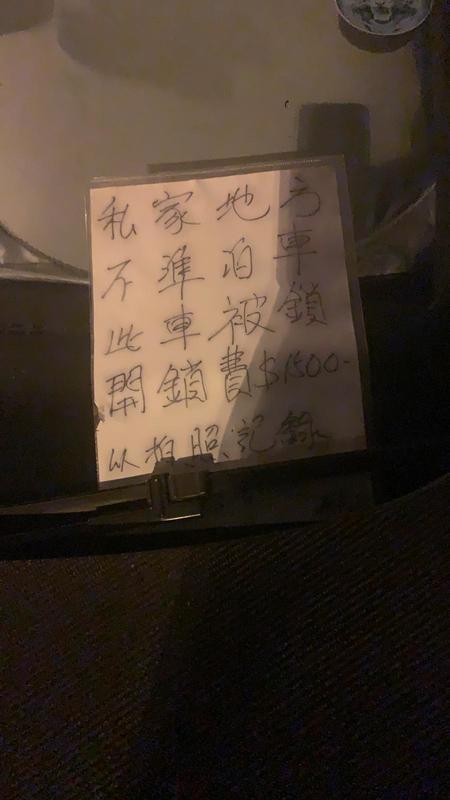 私家地方
不準泊車
此車被鎖
開鎖費$1500-
以拍照記錄